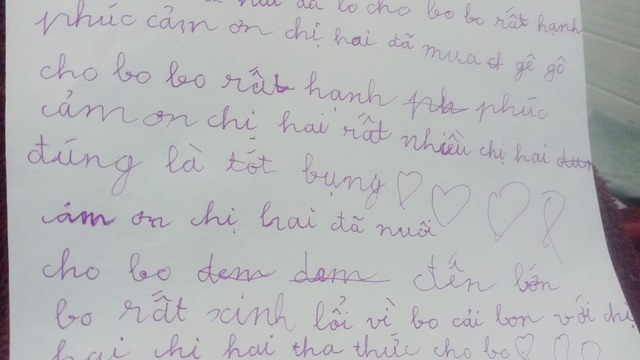 hai đã lo cho bo bo rất hạnh
phúc cảm ơn chị hai đã mua gê gô
cho bo bo rất hạnh phúc
cảm ơn chị hai rất nhiều chị hai
đúng là tốt bụng
cám ơn chị hai đã nuôi
cho bo đến lớn
bo rất xinh lổi vì bo cải bon với chị
hai chị hai tha thức cho bo